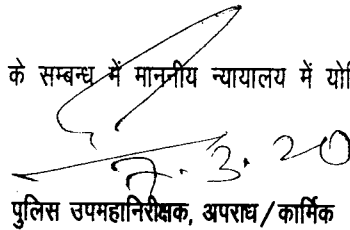 के सम्बन्ध में माननीय न्यायालय में
7.3.20
पुलिस उपमहानिरीक्षक, अपराध/कार्मिक